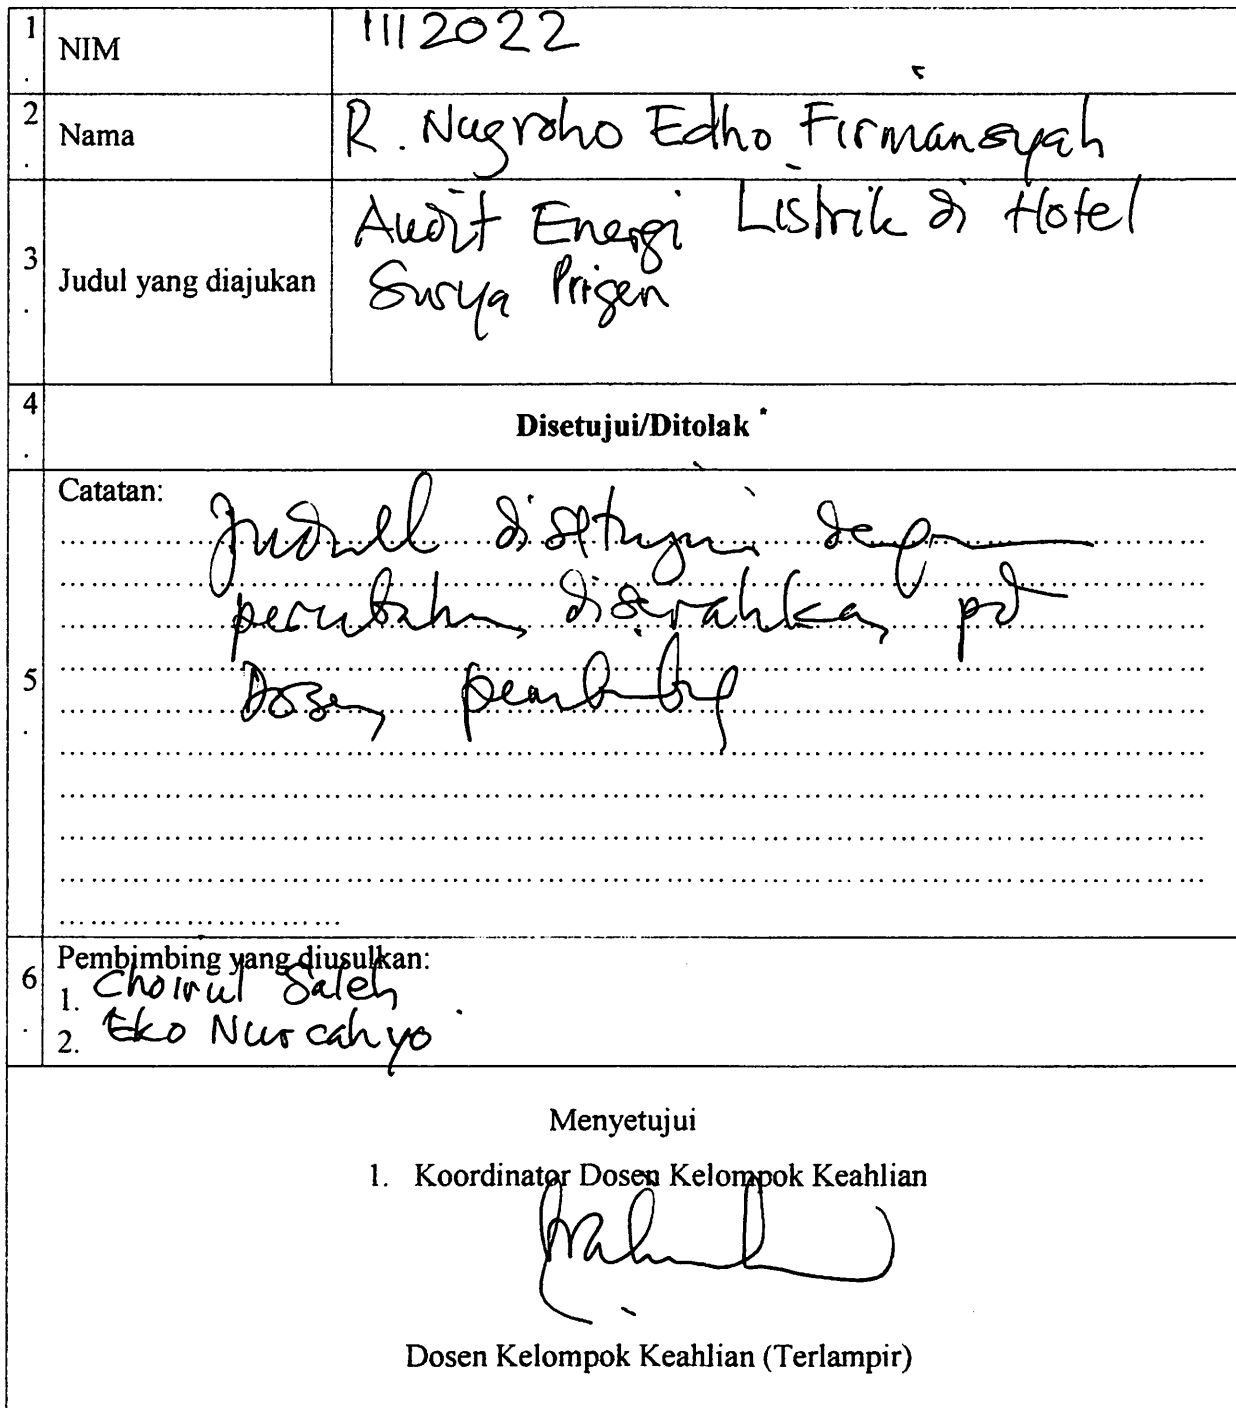 1. NIM 1112022
2. Nama R. Nugroho Edho Firmansyah
3. Judul yang diajukan
Audit Energi Listrik di Hotel
Surya Prigen
4. Disetujui/Ditolak *
5. Catatan:
Judul disetujui dengan
perubahan diserahkan pd
Dosen pembimbing
6. Pembimbing yang diusulkan:
1. Choirul Saleh
2. Eko Nurcahyo
Menyetujui
1. Koordinator Dosen Kelompok Keahlian
Dosen Kelompok Keahlian (Terlampir)